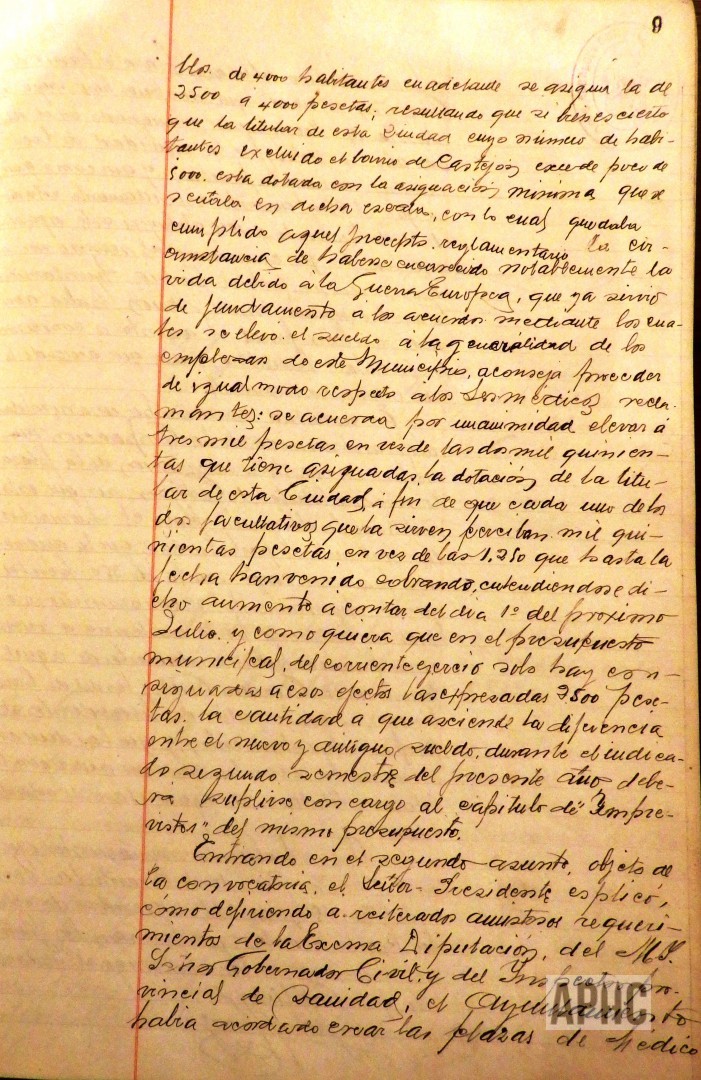 9
llos. de 4000 habitantes en adelante se asigna la de
2500 á 4000 pesetas; resultando que si bien es cierto
que la titular de esta Ciudad cuyo número de habi-
tantes excluido el barrio de Castejón excede poco de
5000. esta dotada con la asignación mínima que se
señala en dicha escala, con lo cual quedaba
cumplido aquel precepto reglamentario la cir-
cunstancia de haberse encarecido notablemente la
vida debido á la Guerra Europea, que ya sirvió
de fundamento a los acuerdos mediante los cua-
les se elevó el sueldo á la generalidad de los
empleados de este Municipio, aconseja proceder
de igual modo respecto a los Sres médicos recla-
mantes: se acuerda por unanimidad elevar á
tres mil pesetas en vez de las dos mil quinien-
tas que tiene asignadas, la dotación de la titu-
lar de esta Ciudad, á fin de que cada uno de los
dos facultativos que la sirven perciban mil qui-
nientas pesetas en vez de las 1.250 que hasta la
fecha han venido cobrando, entendiéndose di-
cho aumento a contar del día 1º del próximo
Julio. y como quiera que en el presupuesto
municipal, del corriente ejercio solo hay con-
signadas a esos efectos las expresadas 2500 pese-
tas. la cantidad a que asciende la diferencia
entre el nuevo y antiguo sueldo, durante el indica-
do segundo semestre del presente año, debe-
rá suplirse con cargo al capitulo de "Impre-
vistos" del mismo presupuesto.
Entrando en el segundo asunto, objeto de
la convocatoria, el Señor Presidente esplicó,
cómo defiriendo a reiterados amistosos requeri-
mientos de la Excma Diputación, del M. I.
Señor Gobernador Civil, y del Inspector pro-
vincial de Sanidad, el Ayuntamiento
había acordado crear las plazas de Medico
APHC